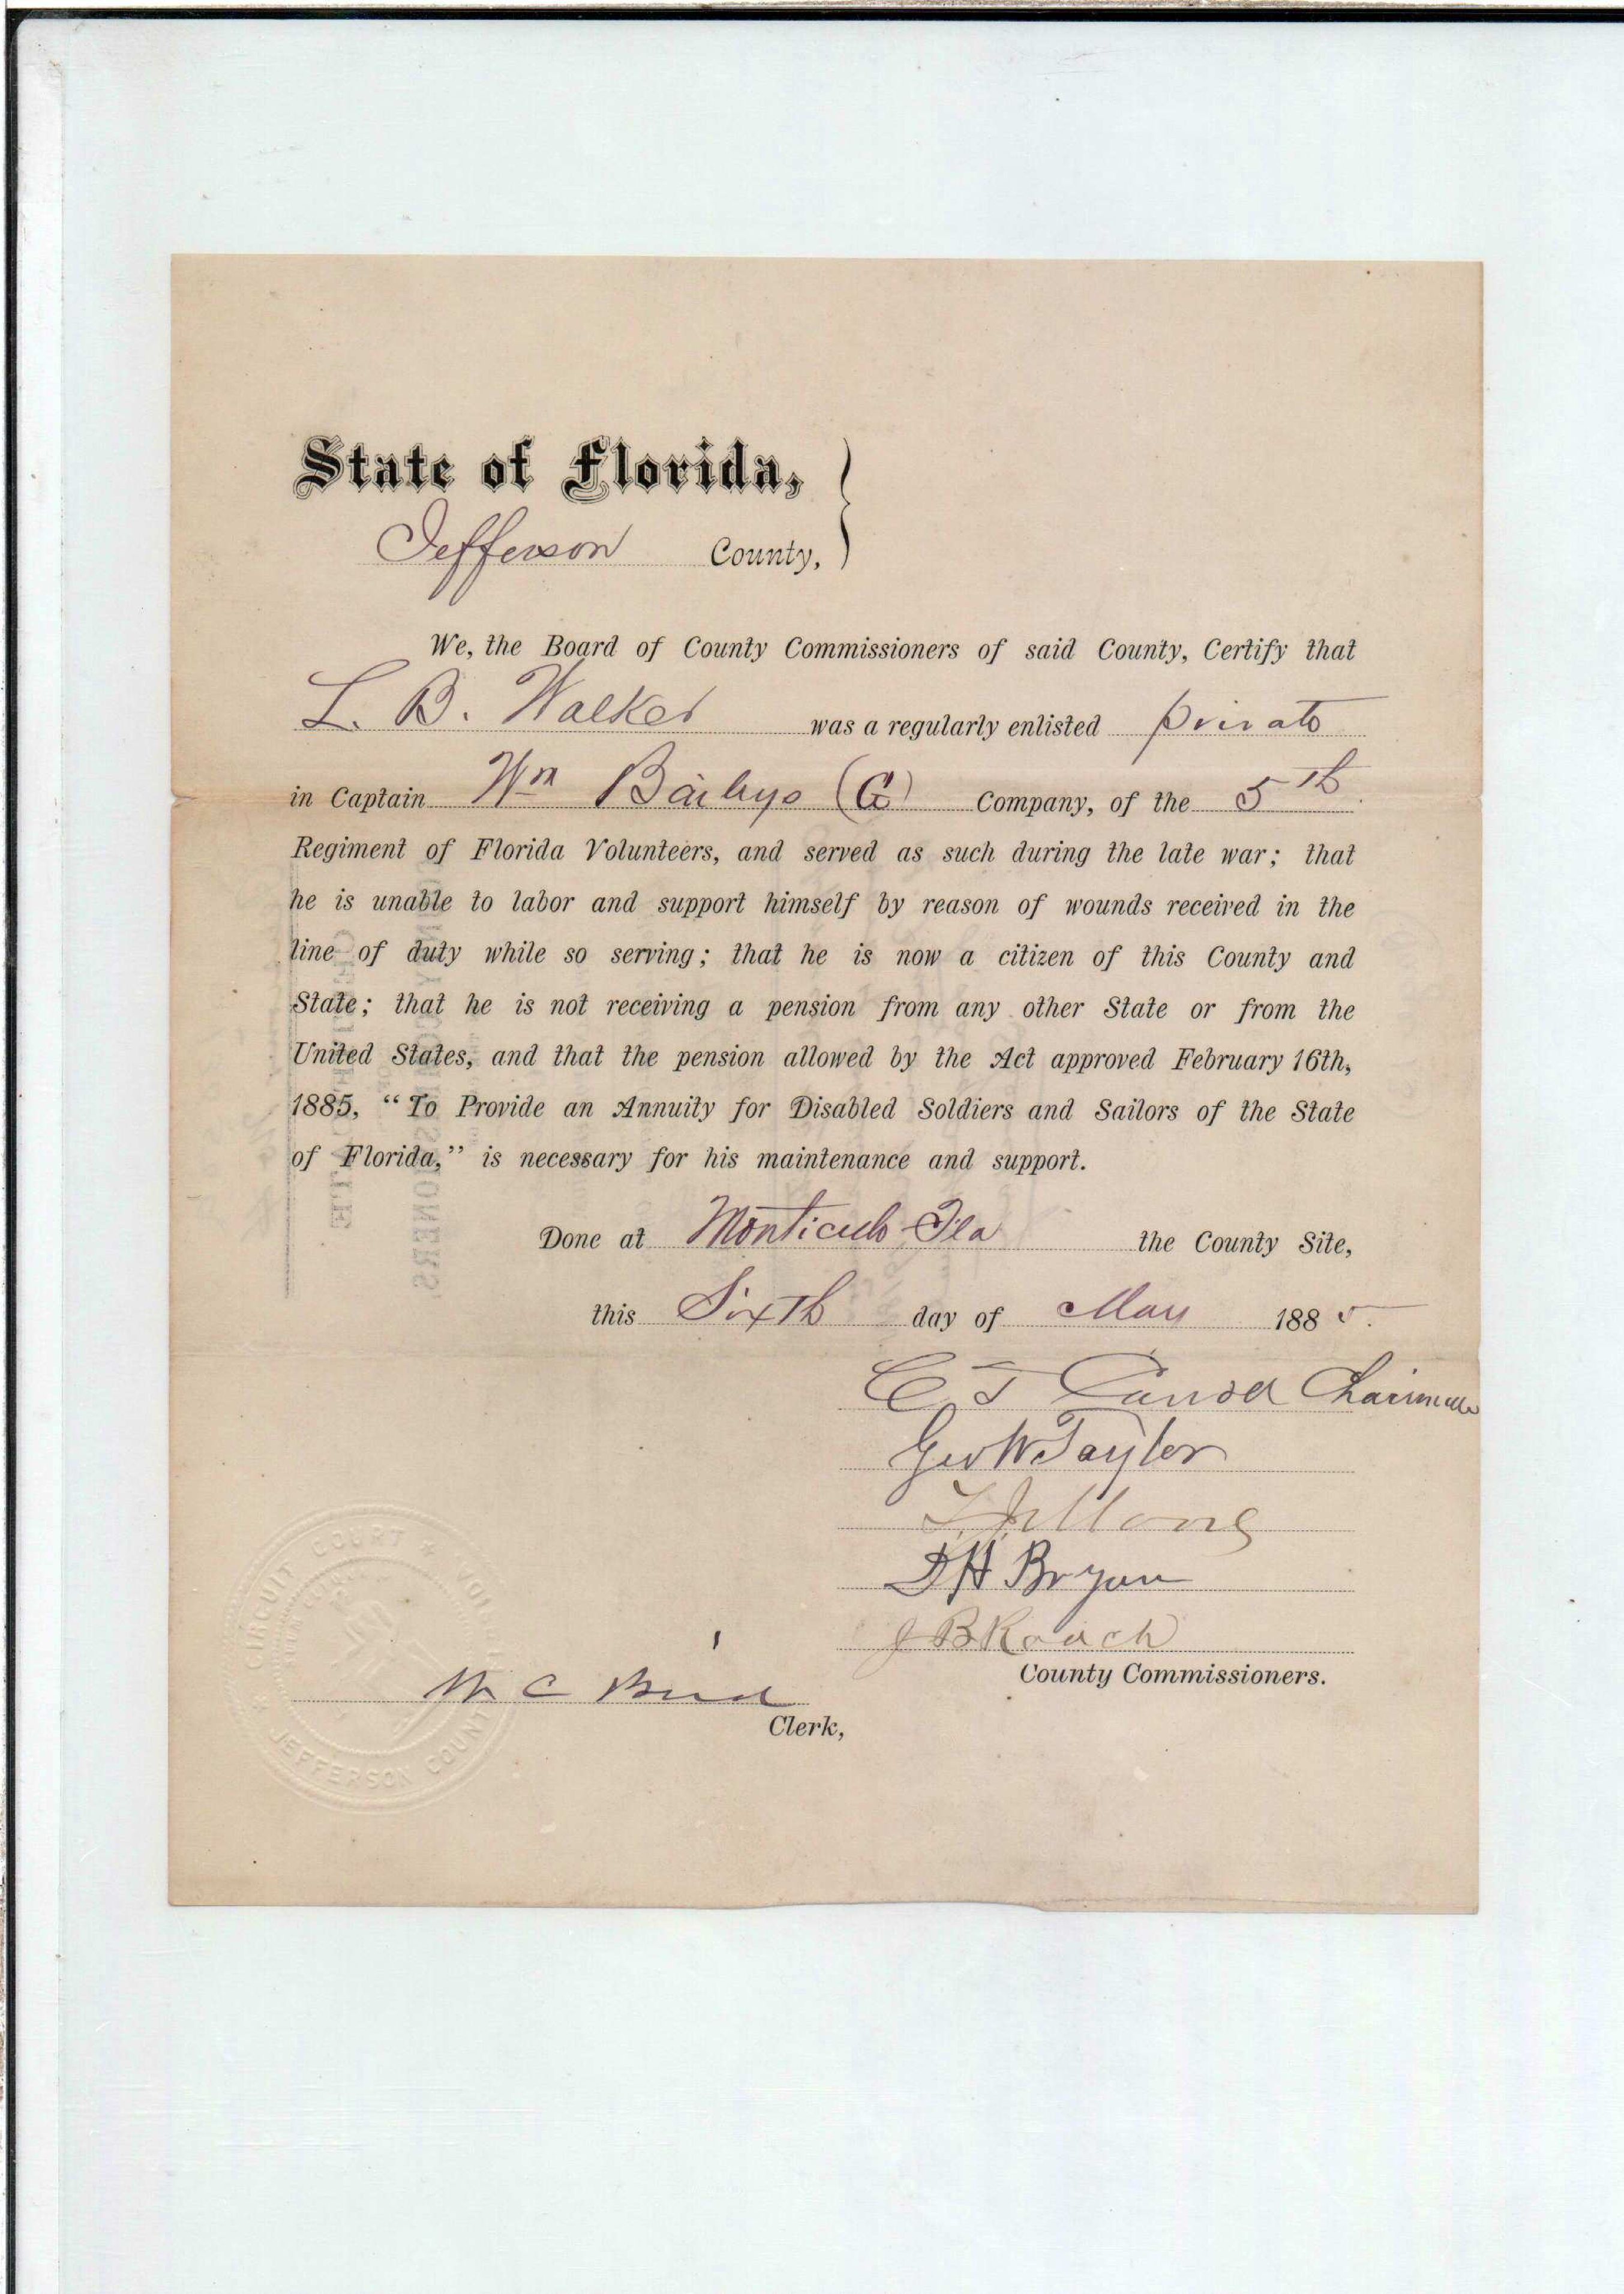 State of Florida,
Jefferson County,
We, the Board of County Commissioners of said County, Certify that
L. B. Walker was a regularly enlisted private
in Captain Wm Baileys (G) Company, of the 5th
Regiment of Florida Volunteers, and served as such during the late war; that
he is unable to labor and support himself by reason of wounds received in the
line of duty while so serving; that he is now a citizen of this County and
State; that he is not receiving a pension from any other State or from the
United States, and that the pension allowed by the Act approved February 16th,
1885, “To Provide an Annuity for Disabled Soldiers and Sailors of the State
of Florida,” is necessary for his maintenance and support.
Done at Monticello Fla the County Site,
this Sixth day of May 1885.
C T Chairman
Geo W Taylor
D H Bryan
J B Roach
County Commissioners.
W C Bird
Clerk,
CIRCUIT COURT
JEFFERSON COUNTY